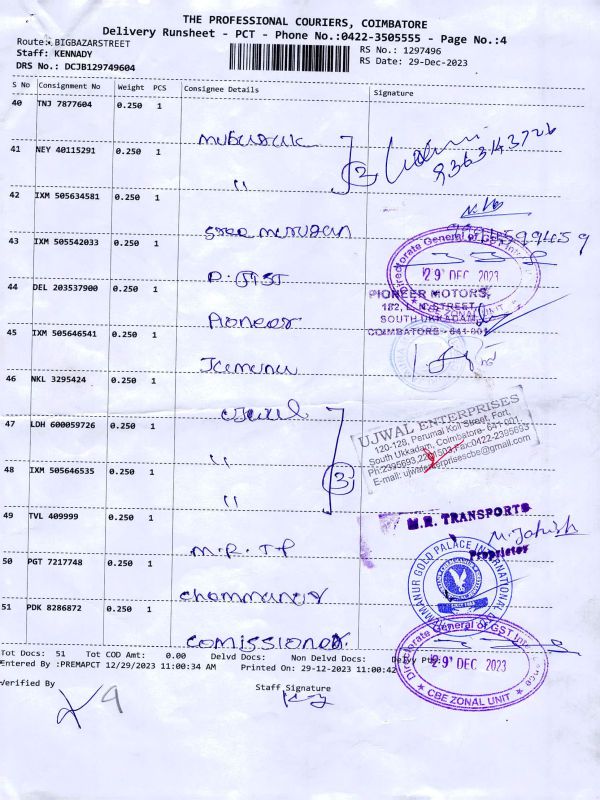 THE PROFESSIONAL COURIERS, COIMBATORE
Delivery Runsheet - PCT - Phone No.:0422-3505555 - Page No.:4
Route: BIGBAZARSTREET
Staff: KENNADY
DRS No.: DCJB129749604
RS No.: 1297496
RS Date: 29-Dec-2023
S No Consignment No Weight PCS Consignee Details Signature
40 TNJ 7877604 0.250 1
mubarak
41 NEY 40115291 0.250 1
" 2
9363143726
42 IXM 505634581 0.250 1
Sree murugan
43 IXM 505542033 0.250 1
D. GST
Directorate General of GST
29 DEC 2023
CBE ZONAL UNIT
44 DEL 203537900 0.250 1
Pioneer
PIONEER MOTORS,
182, L. N. STREET,
SOUTH UKKADAM,
COIMBATORE - 641 001
45 IXM 505646541 0.250 1
46 NKL 3295424 0.250 1
47 LDH 600059726 0.250 1
"
UJWAL ENTERPRISES
120-128, Perumal Koil Street, Fort,
South Ukkadam, Coimbatore- 641 001.
48 IXM 505646535 0.250 1
" 3
49 TVL 409999 0.250 1
M.R.T.P
M.R. TRANSPORTS
Proprietor
50 PGT 7217748 0.250 1
GOLD PALACE INTERNATIONAL
51 PDK 8286872 0.250 1
Comissioner
Tot Docs: 51 Tot COD Amt: 0.00 Delvd Docs: Non Delvd Docs:
Entered By :PREMAPCT 12/29/2023 11:00:34 AM Printed On: 29-12-2023 11:00:42
Directorate General of GST
29 DEC 2023
CBE ZONAL UNIT
Verified By
Staff Signature